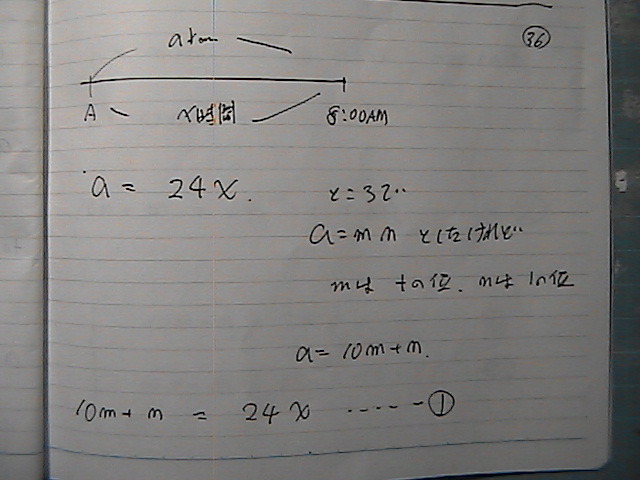 36
a km
A x時間 8:00AM
a = 24x.
ところで..
a = mn としたけれど..
mは 十の位. nは 1の位
a = 10m+n.
10m+n = 24x ‥‥‥①